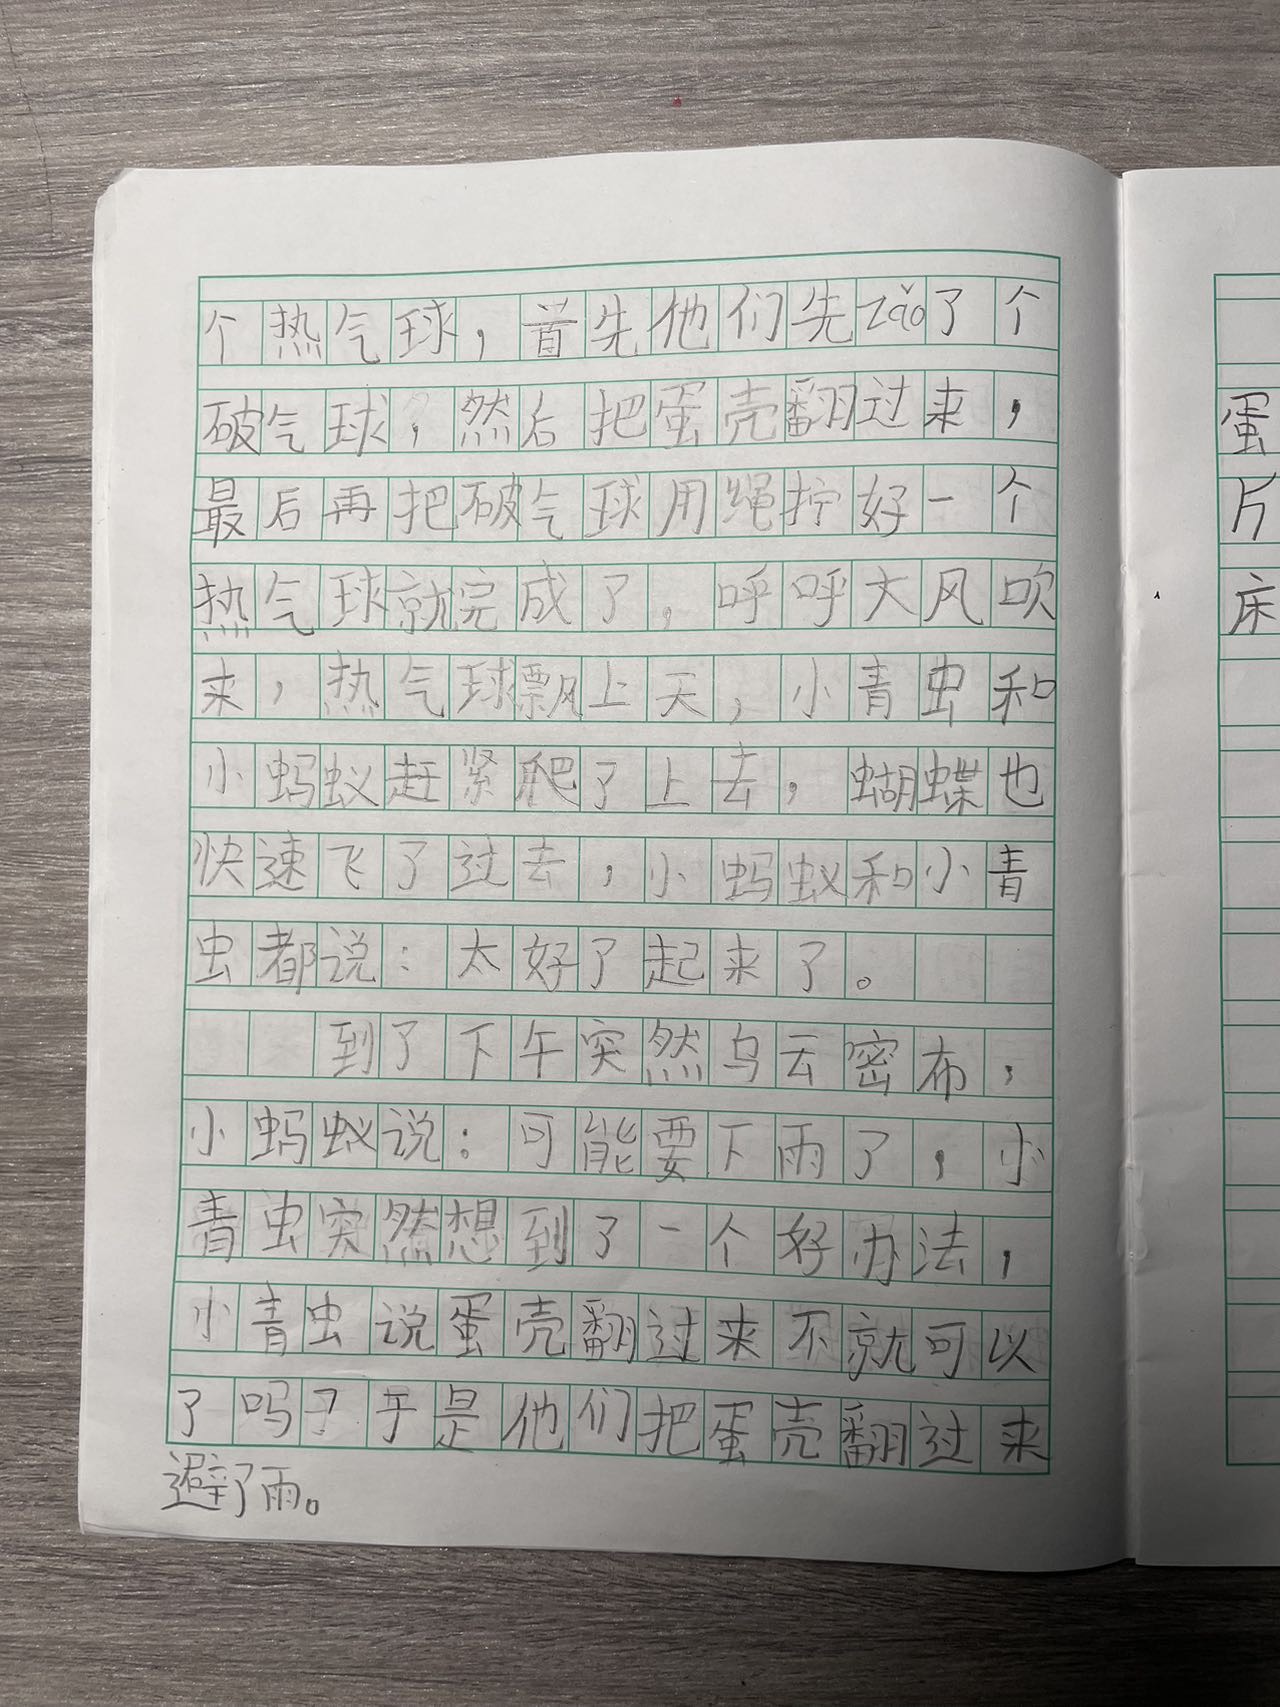 个热气球，首先他们先zǎo了个
破气球，然后把蛋壳翻过来，
最后再把破气球用绳拧好一个
热气球就完成了，呼呼大风吹
来，热气球飘上天，小青虫和
小蚂蚁赶紧爬了上去，蝴蝶也
快速飞了过去，小蚂蚁和小青
虫都说：太好了起来了。
到了下午突然乌云密布，
小蚂蚁说：可能要下雨了，小
青虫突然想到了一个好办法，
小青虫说蛋壳翻过来不就可以
了吗？于是他们把蛋壳翻过来
避了雨。
蛋
片
床